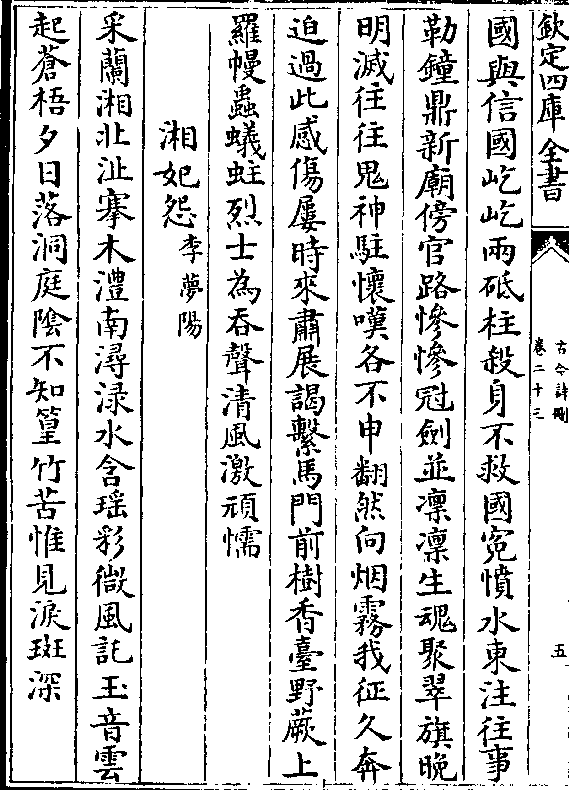 欽定四庫全書
古今詩刪
卷二十三
五
國與信國屹屹兩砥柱殺身不救國寃憤水東注往事
勒鐘鼎新廟傍官路慘慘冠劍並凛凛生魂聚翠旗晚
明滅往往鬼神駐懷嘆各不申翻然向烟霧我征久奔
迫過此感傷屢時來肅展謁繫馬門前樹香臺野蕨上
羅幔蟲蟻蛀烈士為吞聲清風激頑懦
湘妃怨李夢陽
采蘭湘北沚搴木澧南潯渌水含瑶彩微風託玉音雲
起蒼梧夕日落洞庭陰不知篁竹苦惟見淚斑深